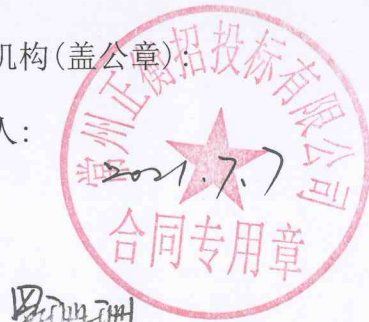 机构(盖公章):
人:
常州正衡招投标有限公司
2021.7.7
合同专用章